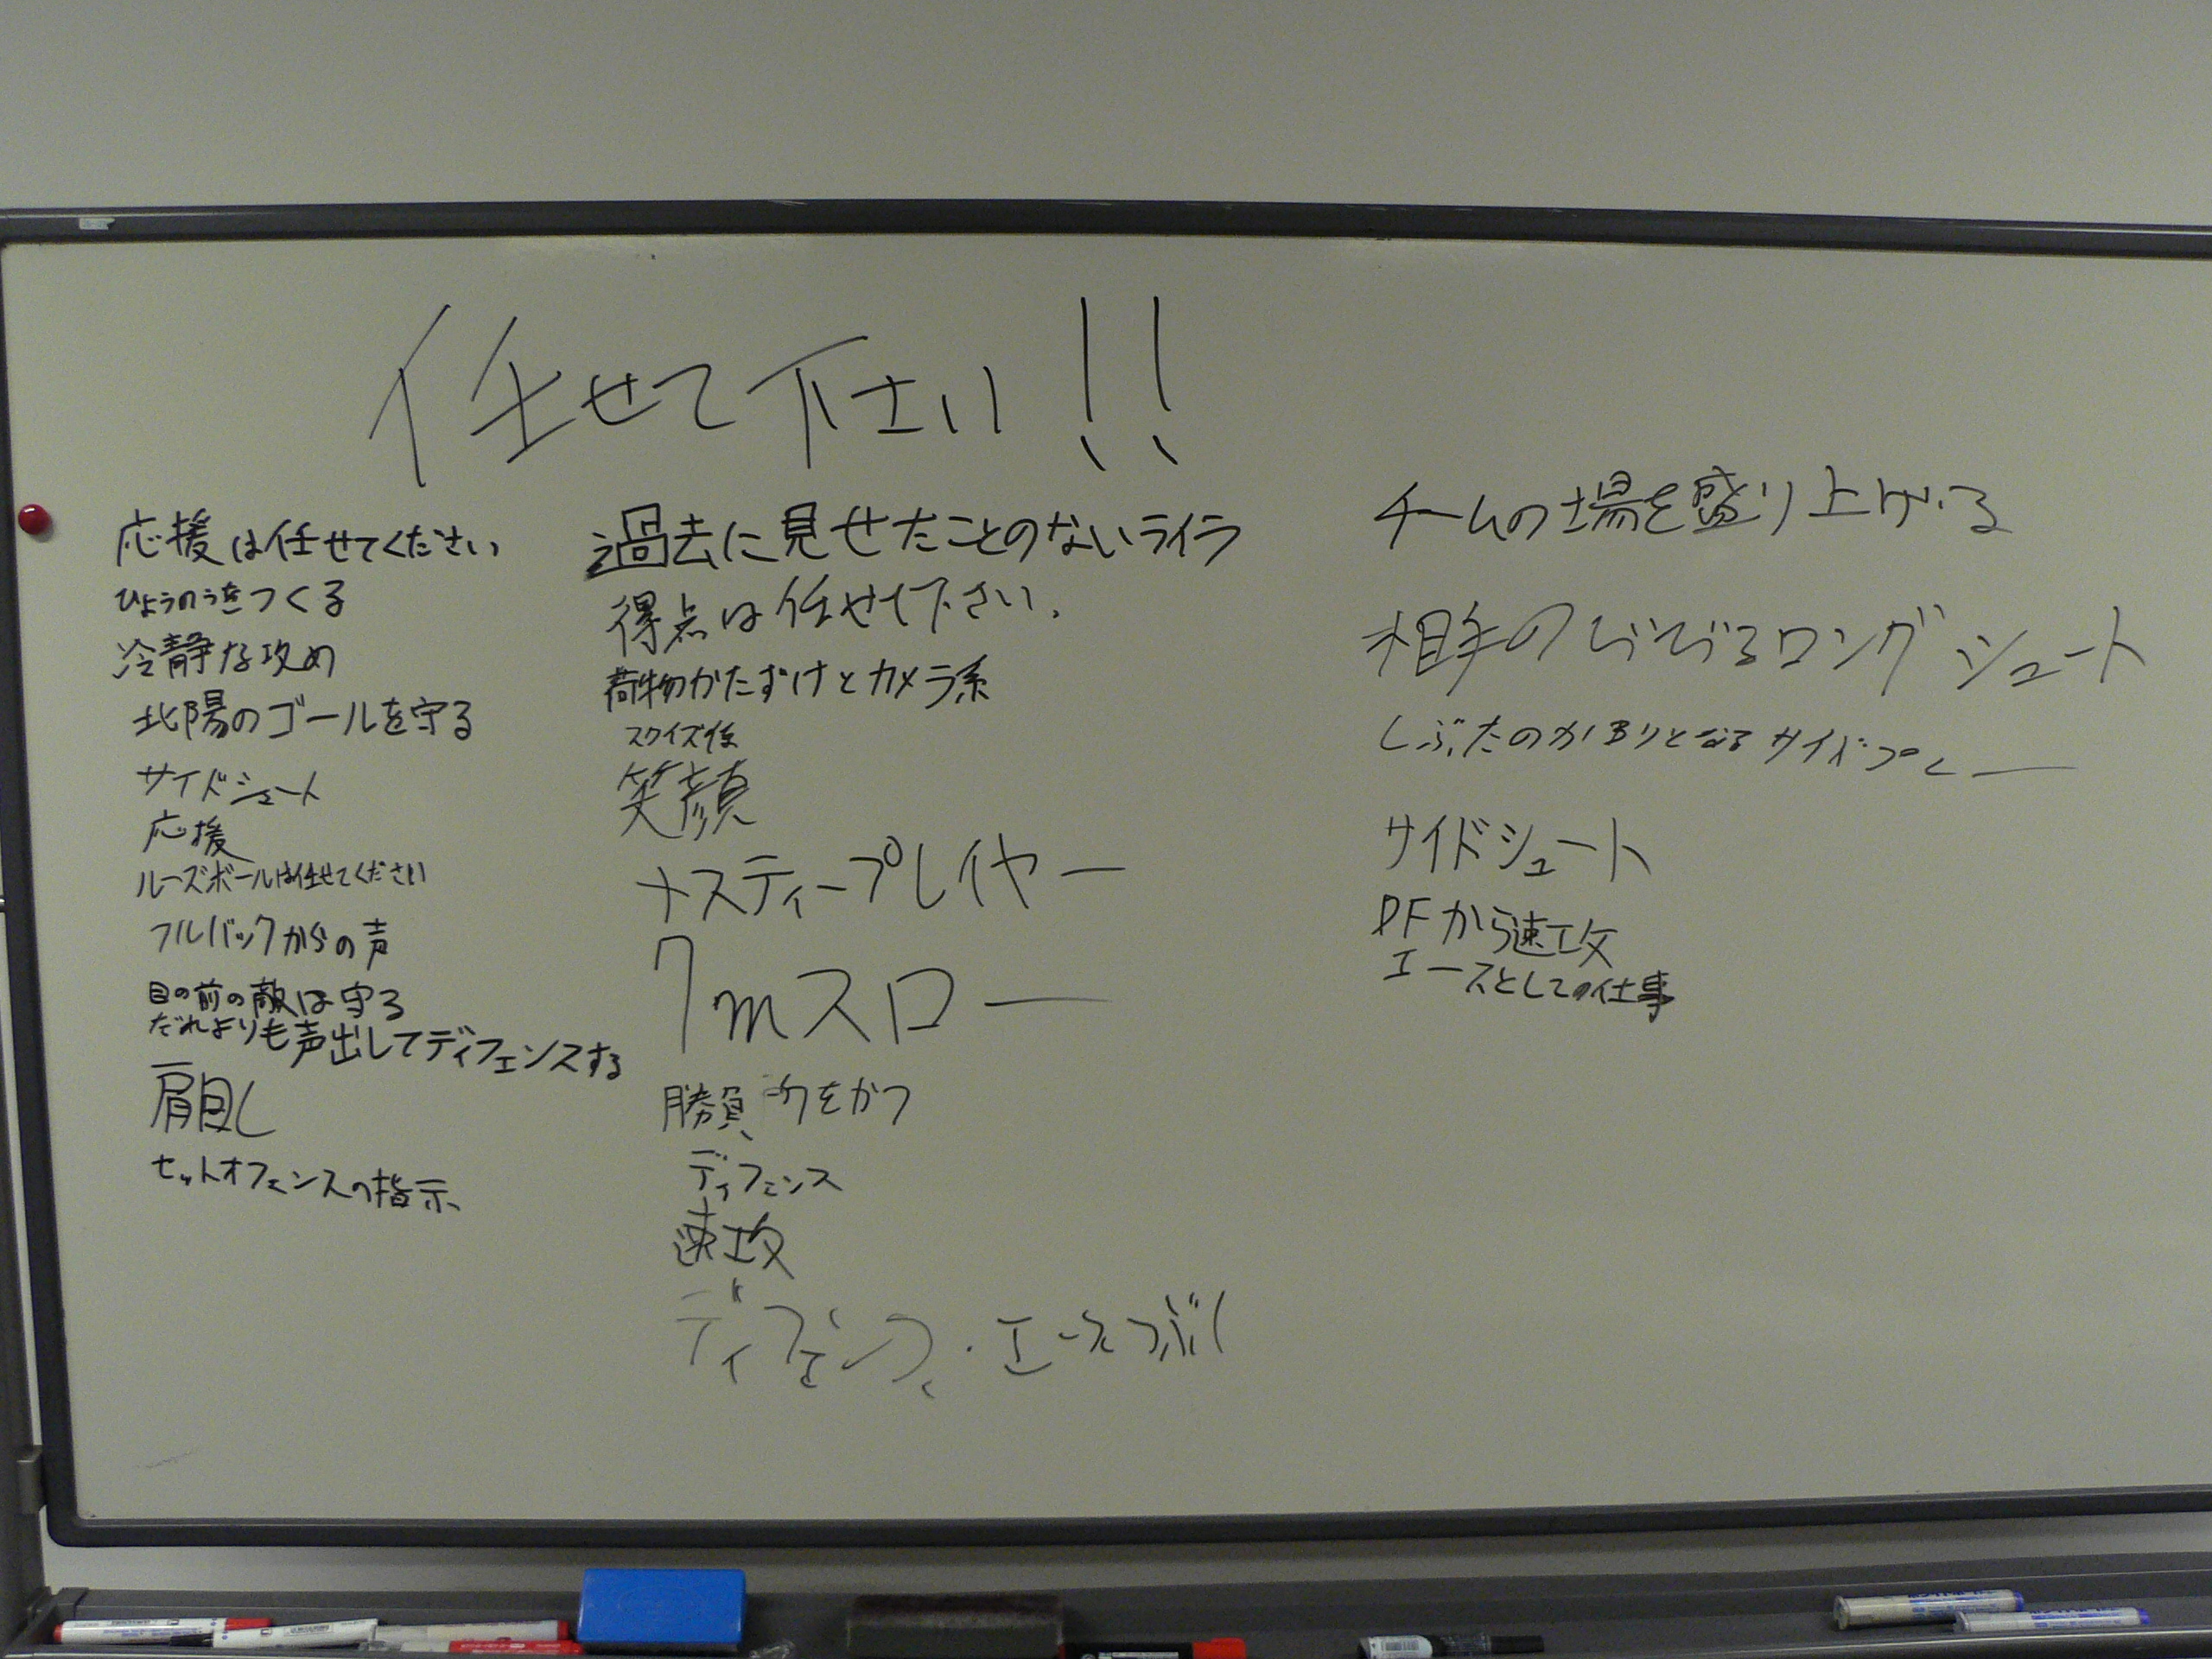 任せて下さい!!
応援は任せてください
ひょうのうをつくる
冷静な攻め
北陽のゴールを守る
サイドシュート
応援
ルーズボールは任せてください
フルバックからの声
目の前の敵は守る
だれよりも声出してディフェンスする
肩回し
セットオフェンスの指示
過去に見せたことのないライラ
得点は任せて下さい.
荷物かたずけとカメラ系
スクイズ係
笑顔
ナスティープレイヤー
7mスロー
勝負 をかつ
ディフェンス
速攻
ディフェンス・エースつぶし
チームの場を盛り上げる
相手のびびるロングシュート
しぶたのかわりとなるサイドプレー
サイドシュート
DFから速攻
エースとしての仕事